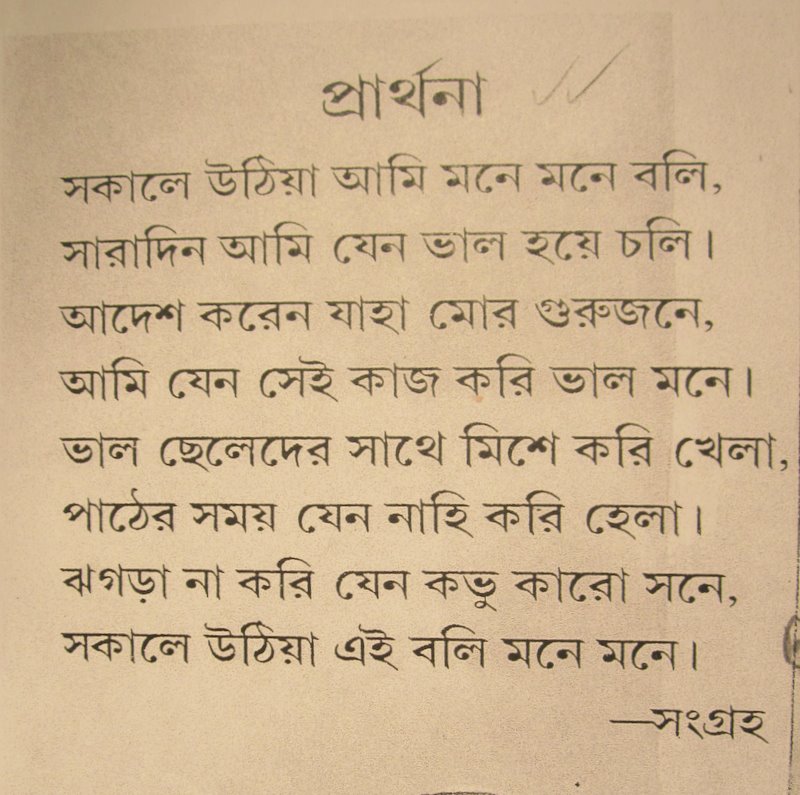 প্রার্থনা
সকালে উঠিয়া আমি মনে মনে বলি,
সারাদিন আমি যেন ভাল হয়ে চলি।
আদেশ করেন যাহা মোর গুরুজনে,
আমি যেন সেই কাজ করি ভাল মনে।
ভাল ছেলেদের সাথে মিশে করি খেলা,
পাঠের সময় যেন নাহি করি হেলা।
ঝগড়া না করি যেন কভু কারো সনে,
সকালে উঠিয়া এই বলি মনে মনে।
—সংগ্রহ